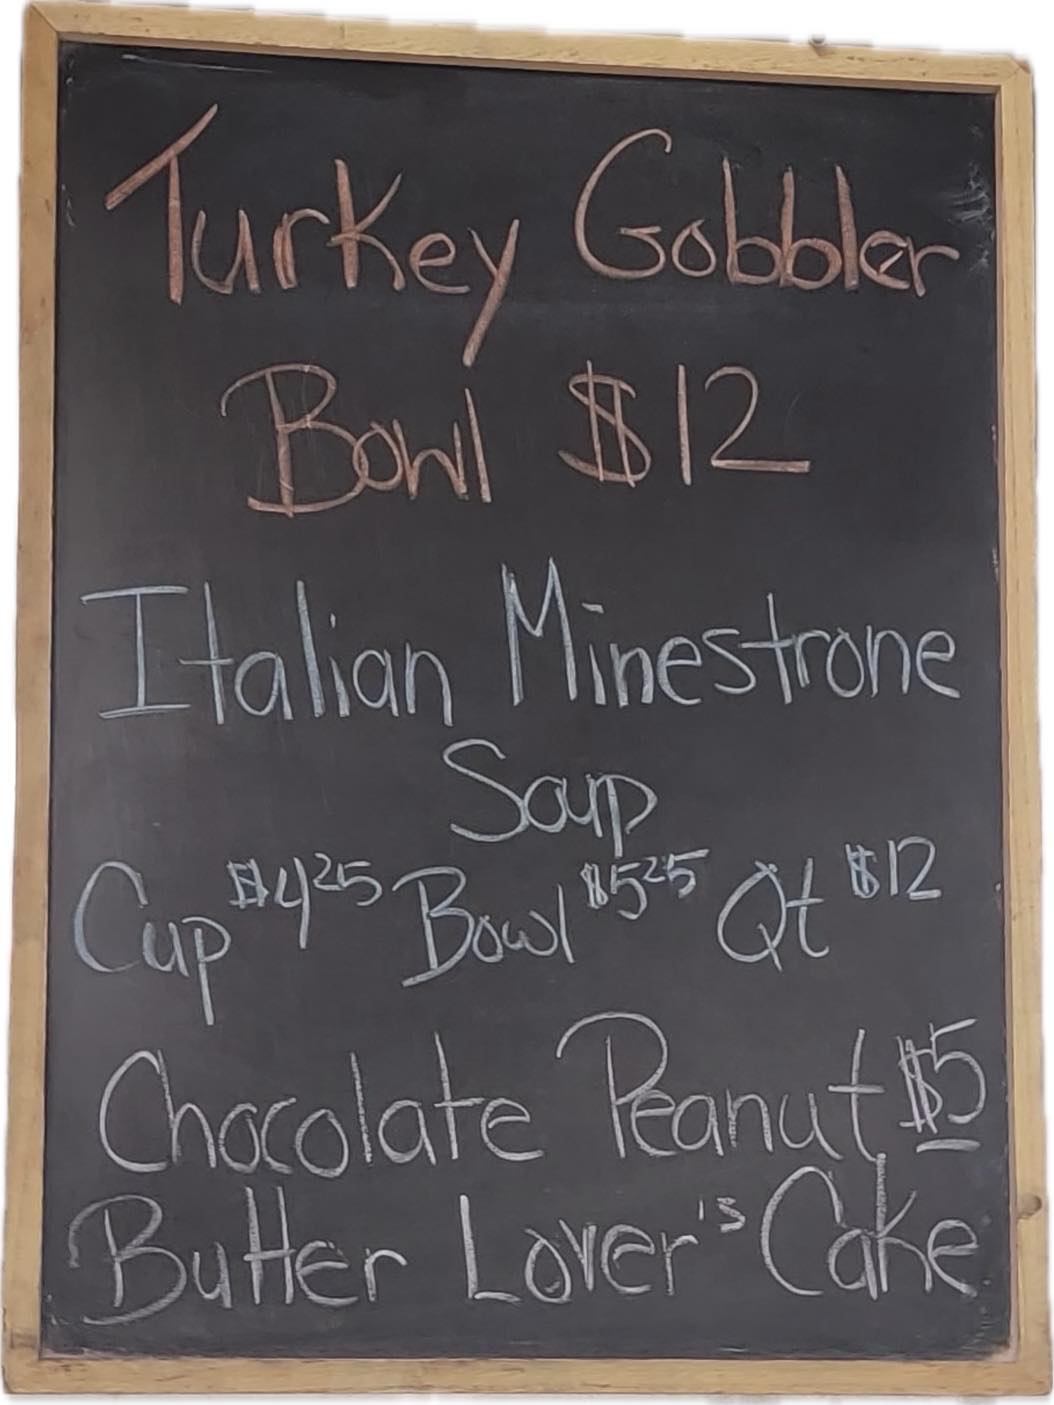 Turkey Gobbler
Bowl $12
Italian Minestrone
Soup
Cup $4.25 Bowl $5.25 Qt $12
Chocolate Peanut $5
Butter Lover's Cake